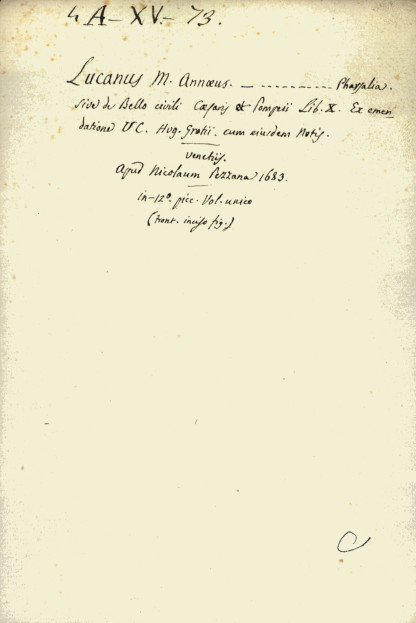 4 A-XV.-73.
Lucanus M. Annæus. — - - - - - - - - - Pharsalia.
sive de Bello civili Cæsaris & Pompeii Lib. X. Ex emen
datione V.C. Hug. Grotii. cum eiusdem Notis.
Venetiis.
Apud Nicolaum Pezzana 1683.
in-12º. picc. Vol. unico
(front. inciso fig.)
C